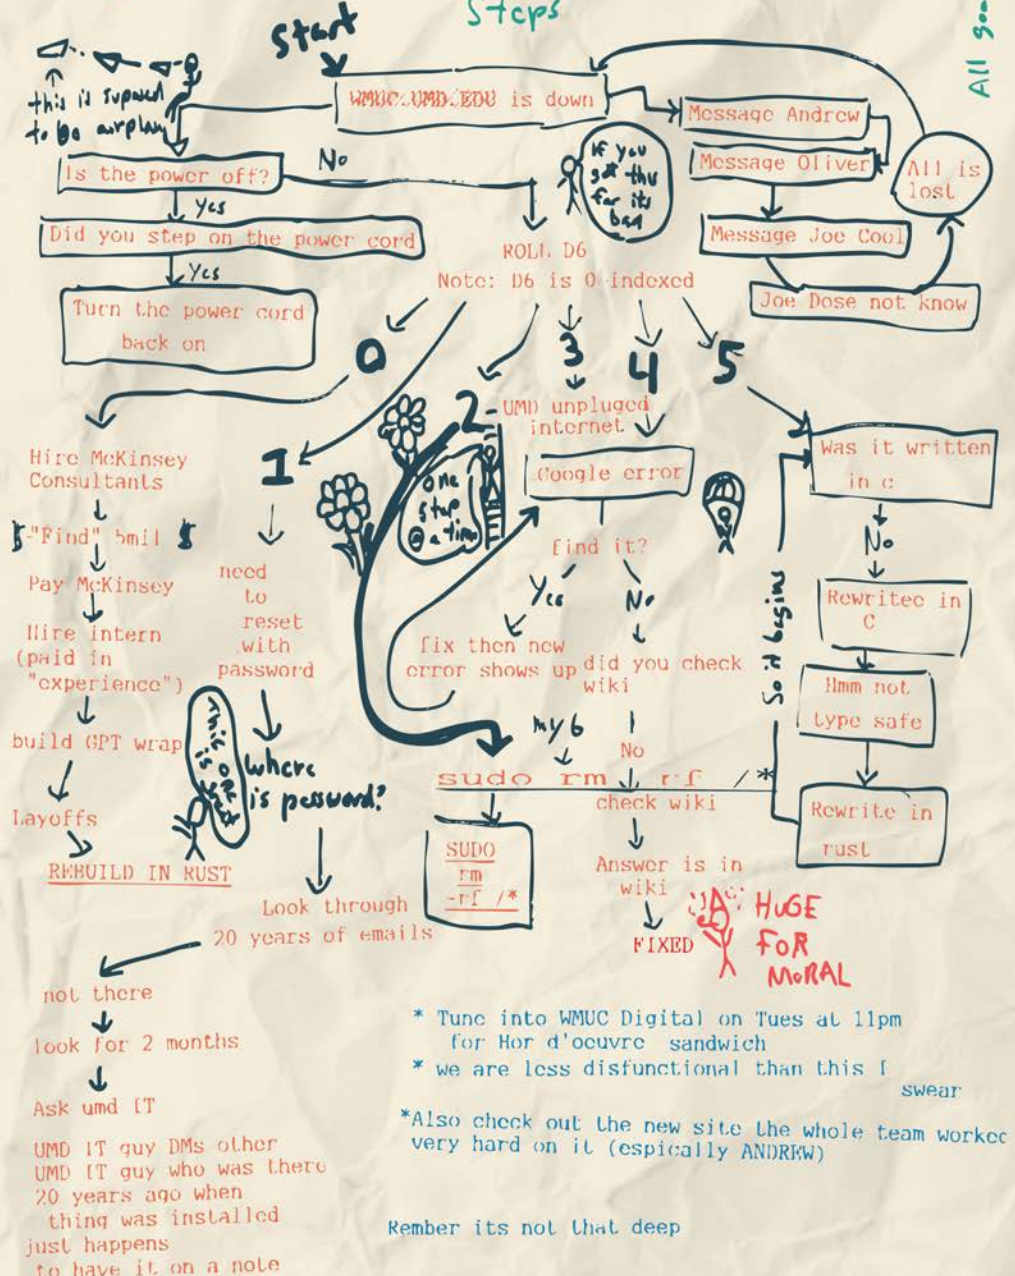 Steps
Start
All
this is suposed
to be airplan
WMUC.UMD.EDU is down
Message Andrew
Message Oliver
Message Joe Cool
Joe Dose not know
All is
lost
Is the power off?
No
Yes
Did you step on the power cord
Yes
Turn the power cord
back on
If you
get this
far its
bad
ROLL D6
Note: D6 is 0 indexed
0
1
2
3
4
5
Hire McKinsey
Consultants
$-"Find" 5mil $
Pay McKinsey
Hire intern
(paid in
"experience")
build GPT wrap
Layoffs
REBUILD IN RUST
need
to
reset
with
password
this one
is
where
is password?
Look through
20 years of emails
not there
look for 2 months
Ask umd IT
UMD IT guy DMs other
UMD IT guy who was there
20 years ago when
thing was installed
just happens
to have it on a note
one
step
@ a time
sudo rm -rf /*
SUDO
rm
-rf /*
UMD unpluged
internet
Google error
find it?
Yes
No
fix then new
error shows up
did you check
wiki
my 6
No
check wiki
Answer is in
wiki
FIXED
HUGE
FOR
MORAL
Was it written
in c
No
Rewritec in
C
Hmm not
type safe
Rewrite in
rust
So it begins
* Tune into WMUC Digital on Tues at 11pm
for Hor d'oeuvre sandwich
* we are less disfunctional than this I
swear
*Also check out the new site the whole team worked
very hard on it (espically ANDREW)
Rember its not that deep